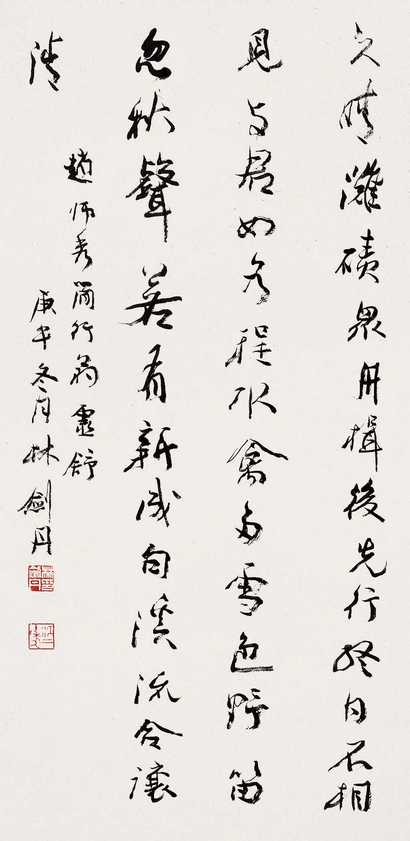 久晴灘磧衆舟楫後先行終日不相
見与君如各程水禽多雪色野笛
忽秋聲若有新成句溪流合讓
清
趙師秀簡行翁靈舒
庚午冬月林劍丹